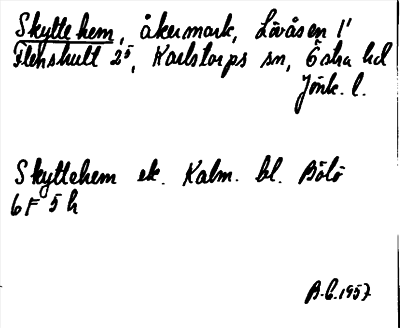 Skyttehem, åkermark, Lövåsen 1¹
Flenshult 2⁵, Karlstorps sn, Östra hd
Jönk. l.
Skyttehem ek. Kalm. bl. Bölö
6 F 5 h
B.G. 1957